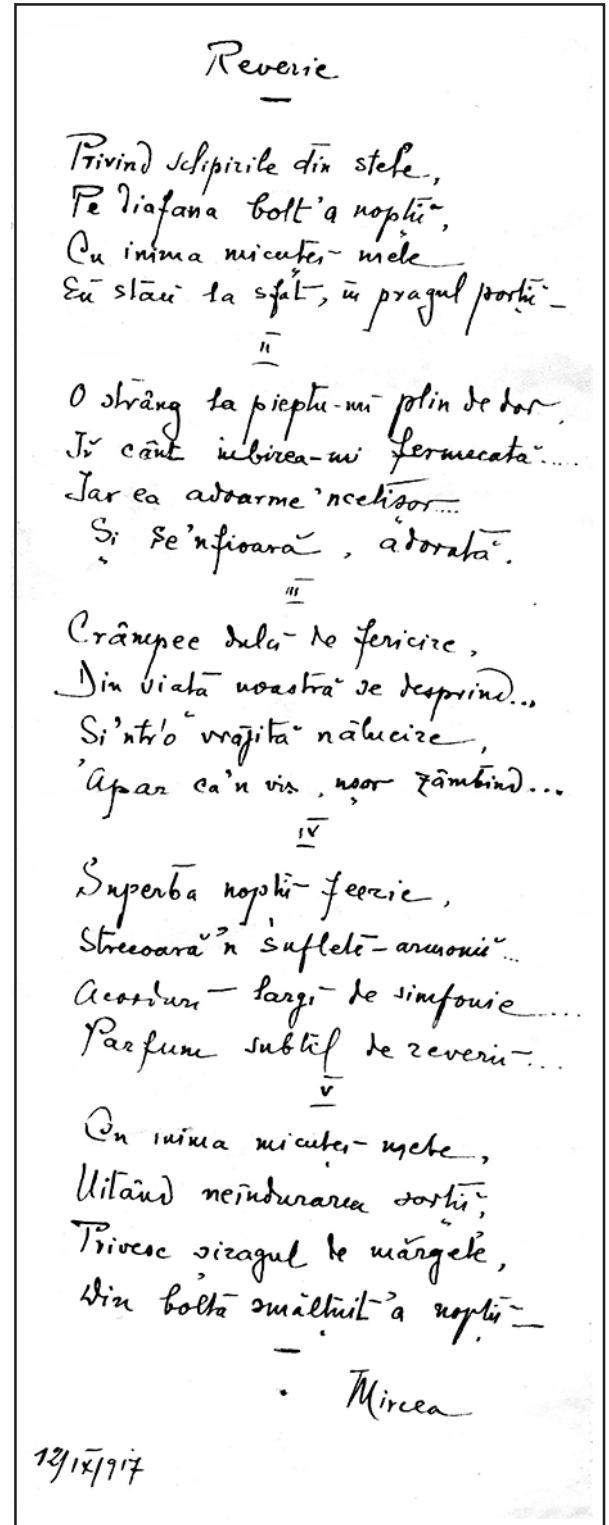 Reverie
Privind sclipirile din stele,
Pe diafana bolt'a nopții,
Cu inima micuței mele
Eu stau la sfat, în pragul porții
II
O strâng la pieptu-mi plin de dor,
Îi cânt iubirea-mi fermecată.....
Iar ea adoarme 'ncetișor....
Și se 'nfioară, adorată.
III
Crâmpee dulci de fericire,
Din viața noastră se desprind...
Si 'ntr'o vrăjită nălucire,
Apar ca'n vis, ușor zâmbind...
IV
Superba nopții feerie,
Strecoară'n suflete armonii...
Acorduri largi de simfonie.....
Parfum subtil de reverii....
V
Cu inima micuței mele,
Uitând neîndurarea sorții,
Privesc șiragul de mărgele,
Din bolta smălțuit'a nopții
Mircea
12/IX/917